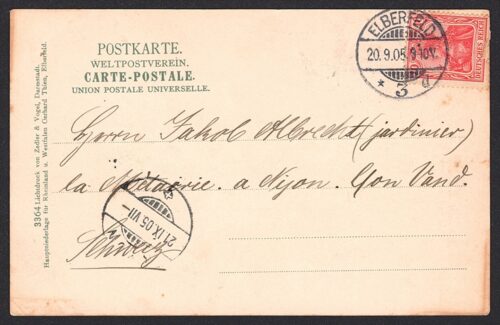 POSTKARTE.
WELTPOSTVEREIN.
CARTE-POSTALE.
UNION POSTALE UNIVERSELLE.
ELBERFELD
20.9.05.
* 3 d
DEUTSCHES REICH
Herrn Jakob Albrecht (jardinier)
la Métairie. a Nijon. Con Vaud.
Schweiz
21.IX.05.VII
3364 Lichtdruck von Zedler & Vogel, Darmstadt.
Hauptniederlage für Rheinland u. Westfalen Gerhard Thien, Elberfeld.